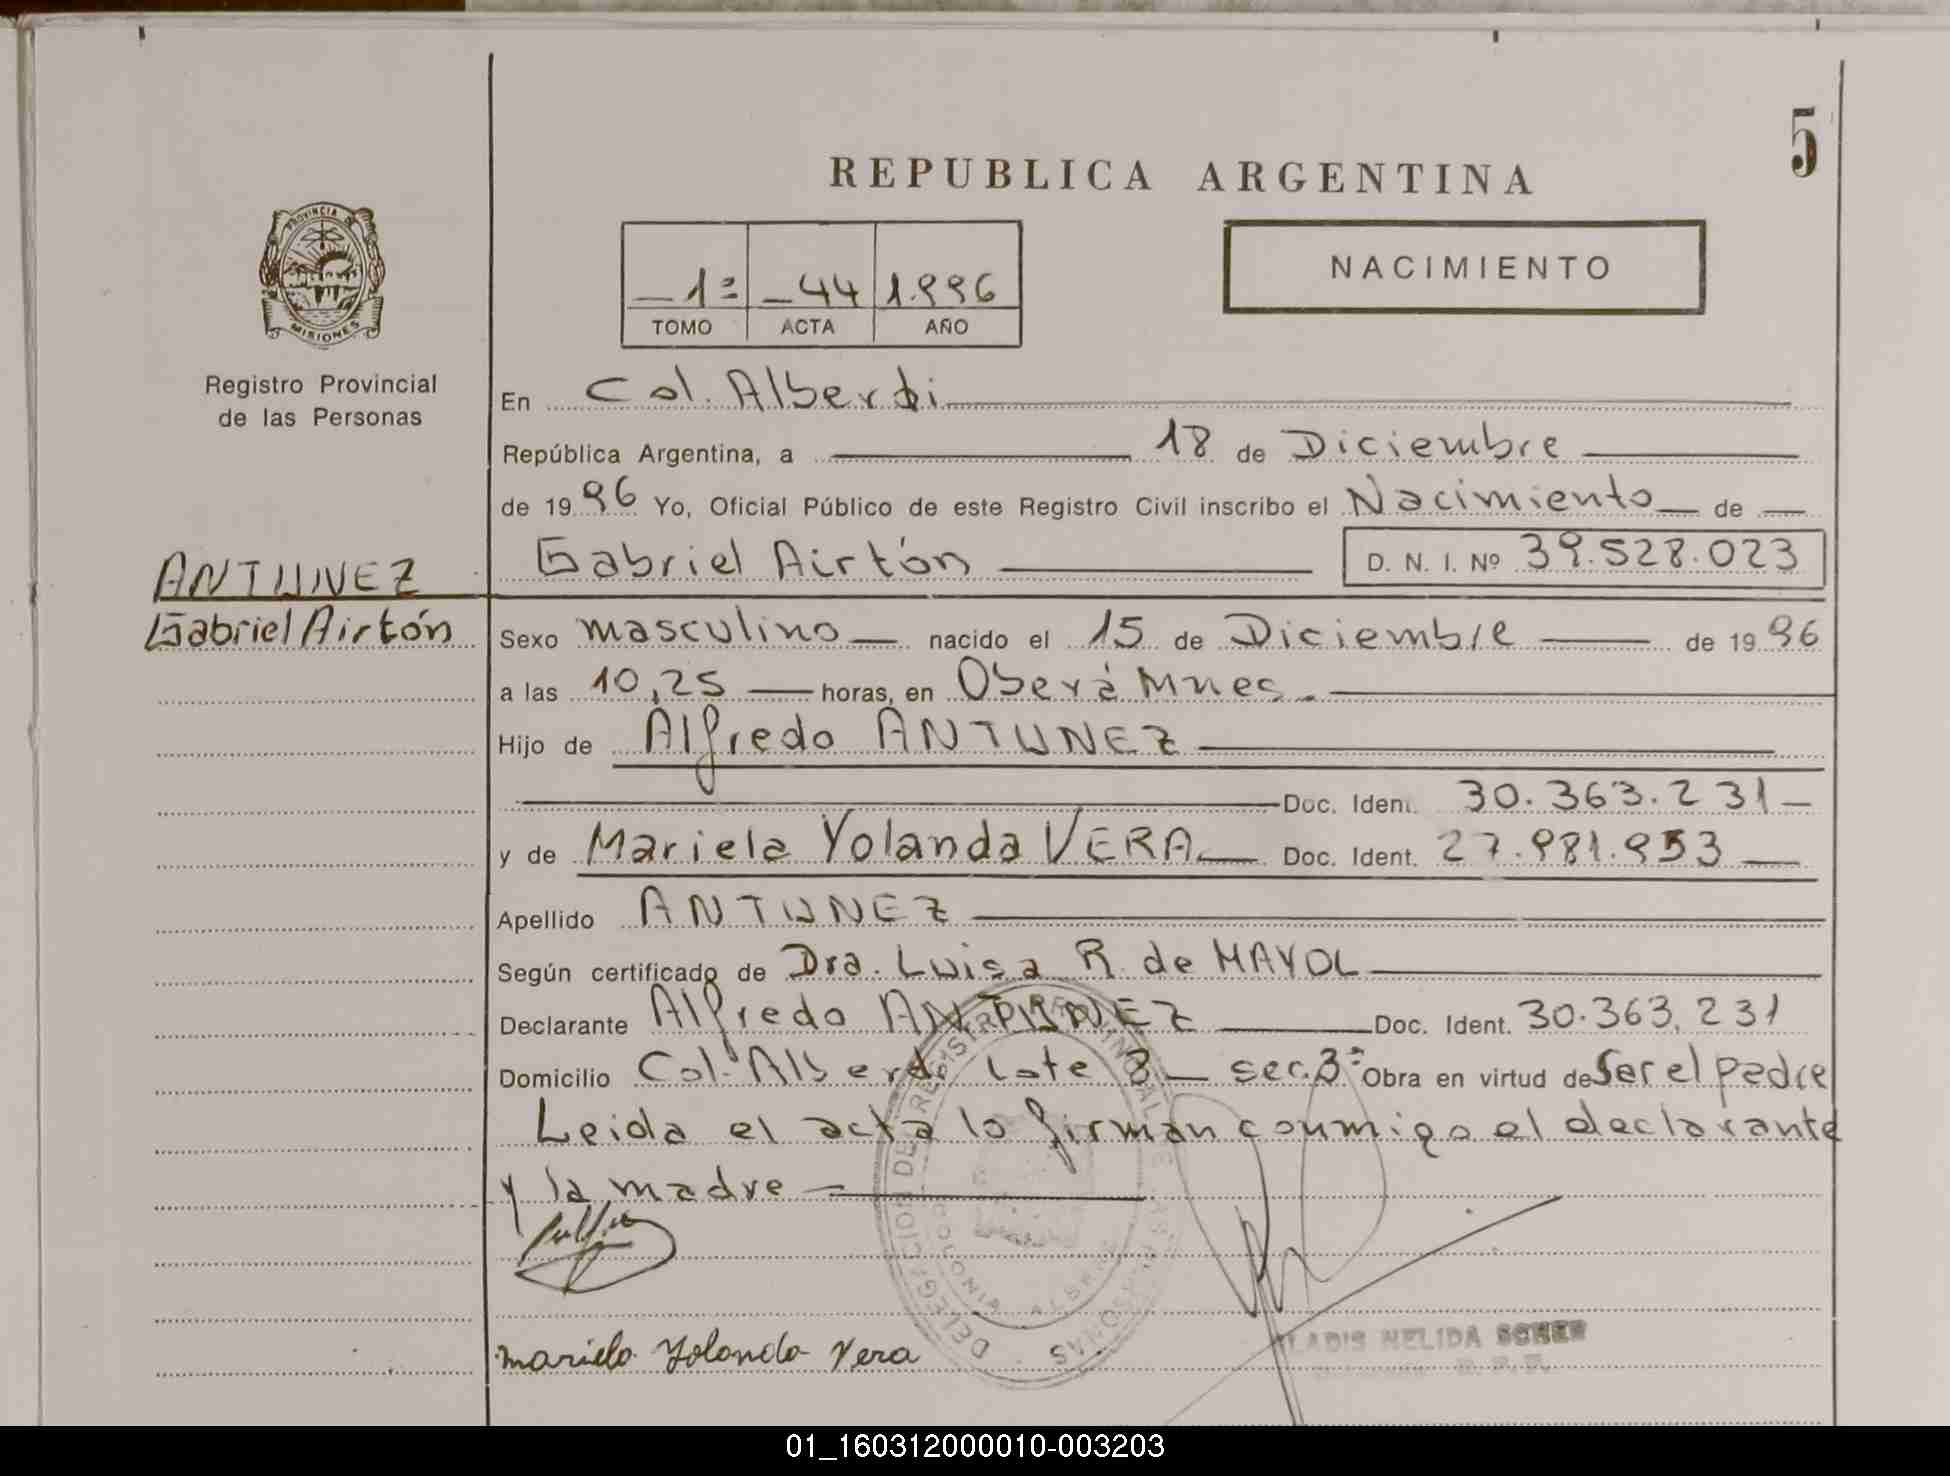 5
REPUBLICA ARGENTINA
PROVINCIA DE
MISIONES
Registro Provincial
de las Personas
1º 44 1.996
TOMO ACTA AÑO
NACIMIENTO
En Col. Alberdi
República Argentina, a 18 de Diciembre
de 1996 Yo, Oficial Público de este Registro Civil inscribo el Nacimiento de
Gabriel Airtón D. N. I. Nº 39.528.023
ANTUNEZ
Gabriel Airtón
Sexo masculino nacido el 15 de Diciembre de 1996
a las 10,25 horas, en Oberá Mnes.
Hijo de Alfredo ANTUNEZ
Doc. Ident. 30.363.231
y de Mariela Yolanda VERA Doc. Ident. 27.981.953
Apellido ANTUNEZ
Según certificado de Dra. Luisa R. de MAYOL
Declarante Alfredo ANTUNEZ Doc. Ident. 30.363.231
Domicilio Col. Alberdi Lote 8 – sec. 3ª Obra en virtud de Ser el padre
Leida el acta lo firman conmigo el declarante
y la madre
DELEGACION DEL REGISTRO PROVINCIAL DE LAS PERSONAS
COLONIA ALBERDI
Mariela Yolanda Vera
GLADIS NELIDA SCHER
01_160312000010-003203